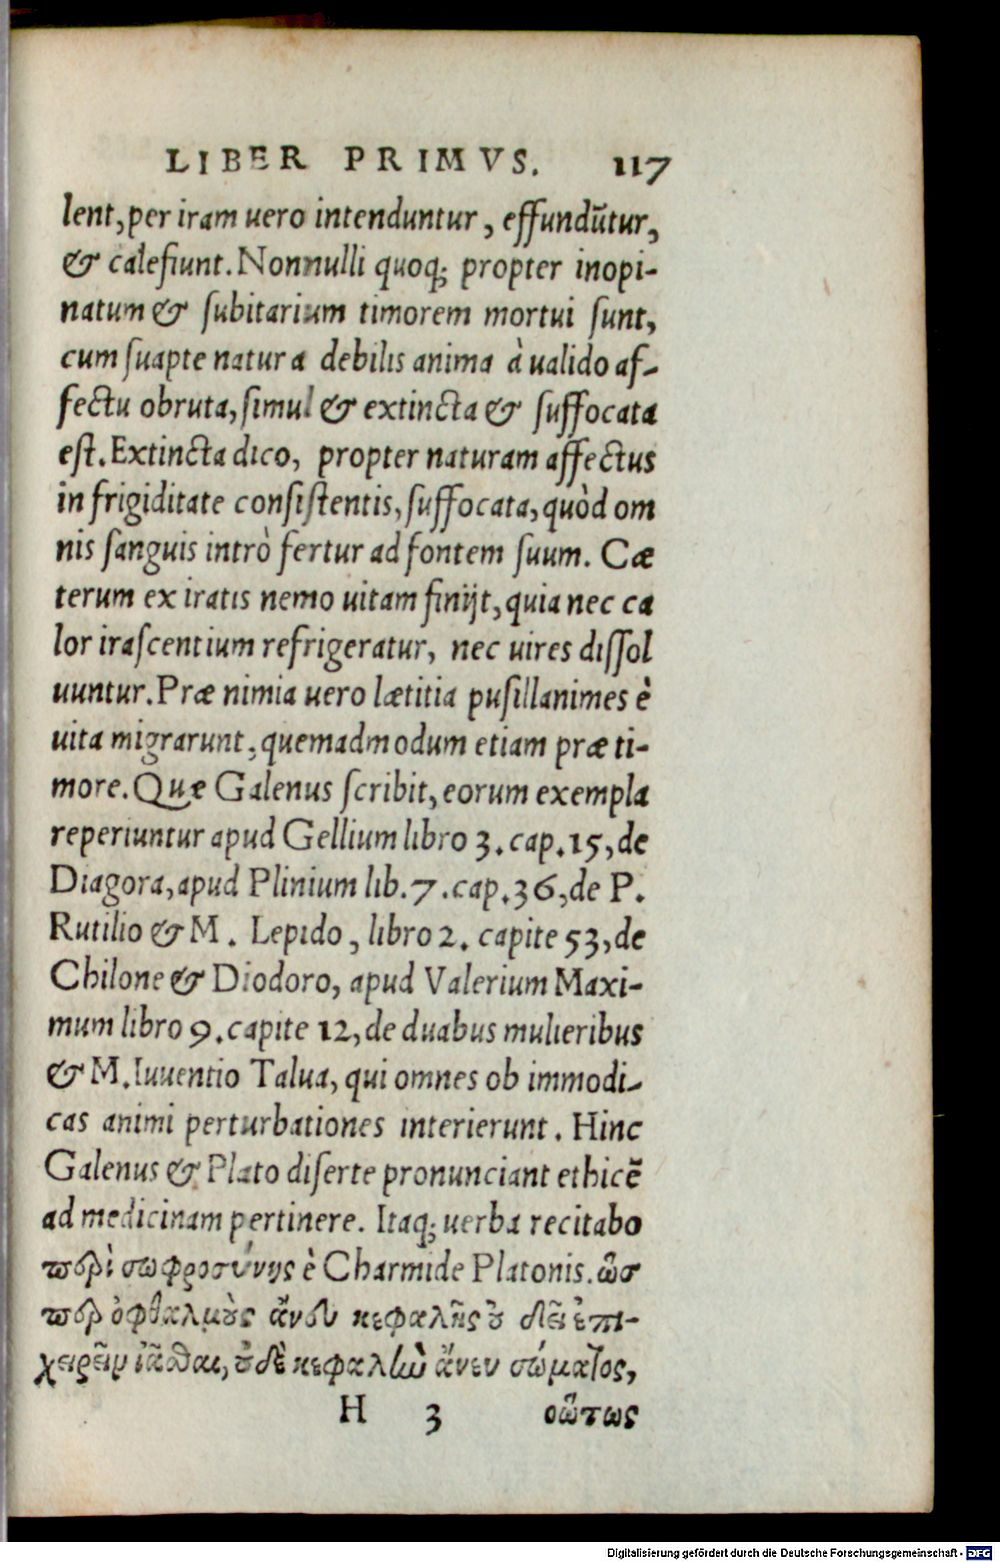 LIBER PRIMVS. 117
lent, per iram uero intenduntur, effundũtur,
& calefiunt. Nonnulli quoq; propter inopi-
natum & ſubitarium timorem mortui ſunt,
cum ſuapte natura debilis anima à ualido af-
fectu obruta, ſimul & extincta & ſuffocata
eſt. Extincta dico, propter naturam affectus
in frigiditate conſiſtentis, ſuffocata, quòd om
nis ſanguis intrò fertur ad fontem ſuum. Cæ
terum ex iratis nemo uitam finijt, quia nec ca
lor iraſcentium refrigeratur, nec uires diſſol
uuntur. Præ nimia uero lætitia puſillanimes è
uita migrarunt, quemadmodum etiam præ ti-
more. Quæ Galenus ſcribit, eorum exempla
reperiuntur apud Gellium libro 3. cap. 15, de
Diagora, apud Plinium lib. 7. cap. 36, de P.
Rutilio & M. Lepido, libro 2. capite 53, de
Chilone & Diodoro, apud Valerium Maxi-
mum libro 9. capite 12, de duabus mulieribus
& M. Iuuentio Talua, qui omnes ob immodi-
cas animi perturbationes interierunt. Hinc
Galenus & Plato diſerte pronunciant ethicẽ
ad medicinam pertinere. Itaq; uerba recitabo
περὶ σωφροσύνης è Charmide Platonis. ὥσ
περ ὀφθαλμοὺς ἄνευ κεφαλῆς οὐ δεῖ ἐπι-
χειρεῖν ἰᾶσθαι, οὐδὲ κεφαλὴν ἄνευ σώματος,
H 3 οὕτως
Digitalisierung gefördert durch die Deutsche Forschungsgemeinschaft - DFG